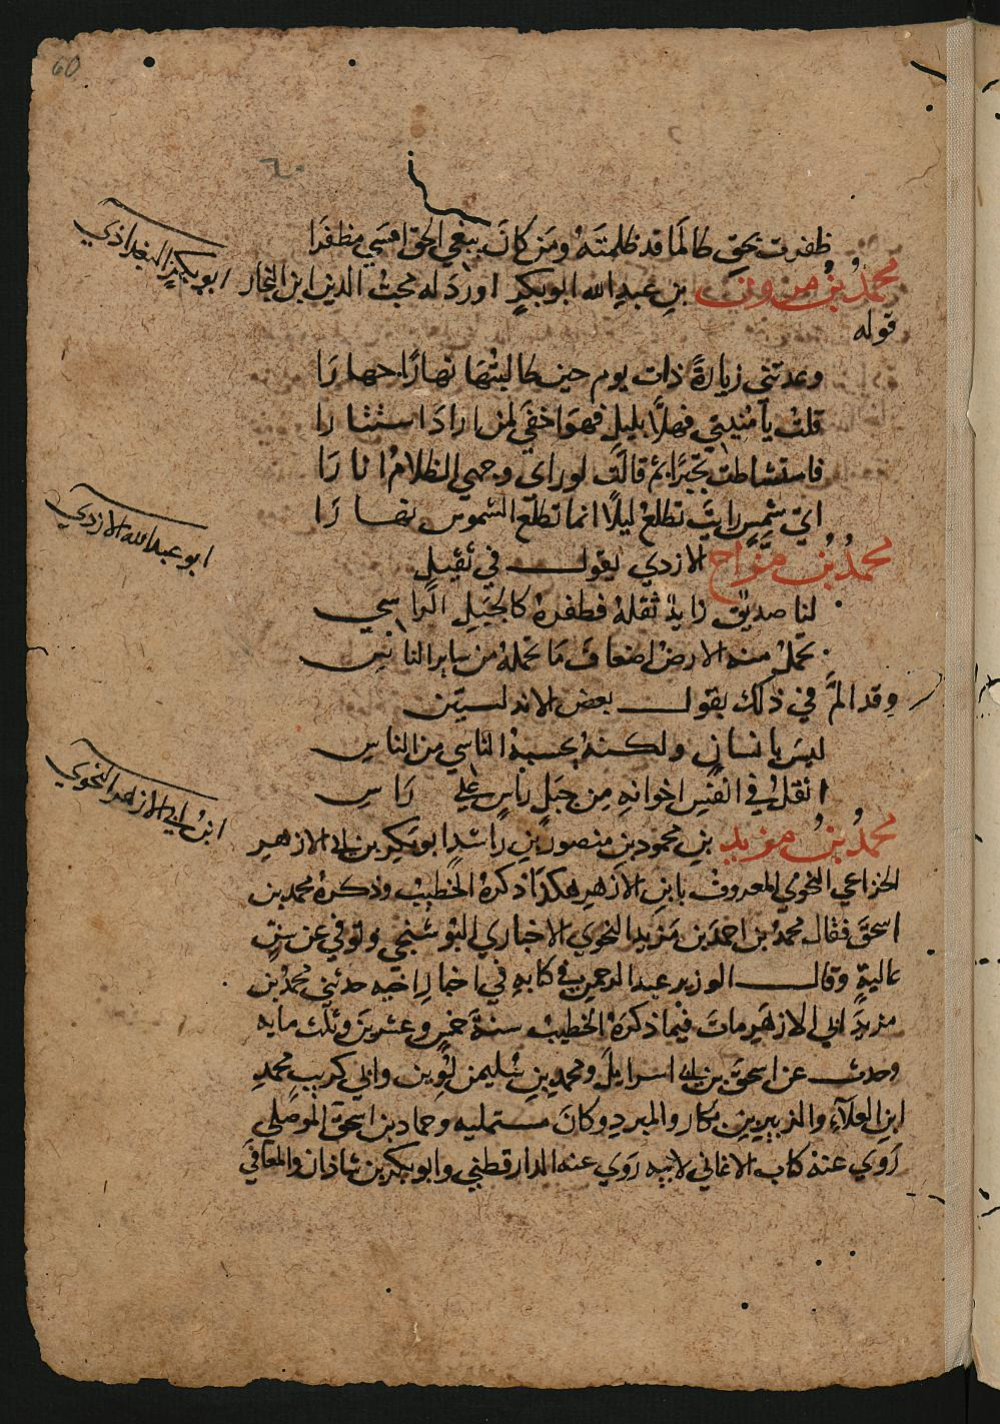 60
٦٠
ظفرت بحق طالما قد ظلمته ومن كان يبغي الحق امسي مظفرا
ابو بكر البغداذي
محمد بن مروان بن عبد الله ابو بكر اورد له محب الدين ابن النجار
قوله
وعدتني زيارة ذات يوم حين طالبتها نهارا جهارا
قلت يا منيتي فهلا بليل فهو اخفي لمن اراد استتارا
فاستشاطت تحيرا ثم قالت لو راى وجهي الظلام انارا
اي شمس رايت تطلع ليلا انما تطلع الشموس نهارا
ابو عبد الله الازدي
محمد بن مزاح الازدي يقول في ثقيل
لنا صديق زايد ثقله فظفره كالجبل الراسي
تحمل منه الارض اضعاف ما تحمله من ساير الناس
وقد الم في ذلك بقول بعض الاندلسيين
ليس بانسان ولكنه يحسبه الناس من الناس
اثقل في انفس اخوانه من جبل راس علي راس
ابن ابي الازهر النحوي
محمد بن مزيد بن محمود بن منصور بن راشد ابو بكر بن ابي الازهر
الخزاعي النحوي المعروف بابن الازهر هكذا ذكره الخطيب وذكره محمد بن
اسحق فقال محمد بن احمد بن مزيد النحوي الاخباري البوشنجي وتوفي عن سن
عالية وقال الوزير عبد الرحمن في كتابه في اخبار اخيه حدثني محمد بن
مزيد ابي الازهر مات فيما ذكره الخطيب سنة خمس وعشرين وثلث مايه
وحدث عن اسحق بن ابي اسرايل ومحمد بن سليمن لوين وابي كريب محمد
ابن العلاء والزبير بن بكار والمبرد وكان مستمليه وحماد بن اسحق الموصلي
روي عنه كتاب الاغاني لابيه روي عنه الدارقطني وابو بكر بن شاذان والمعافي